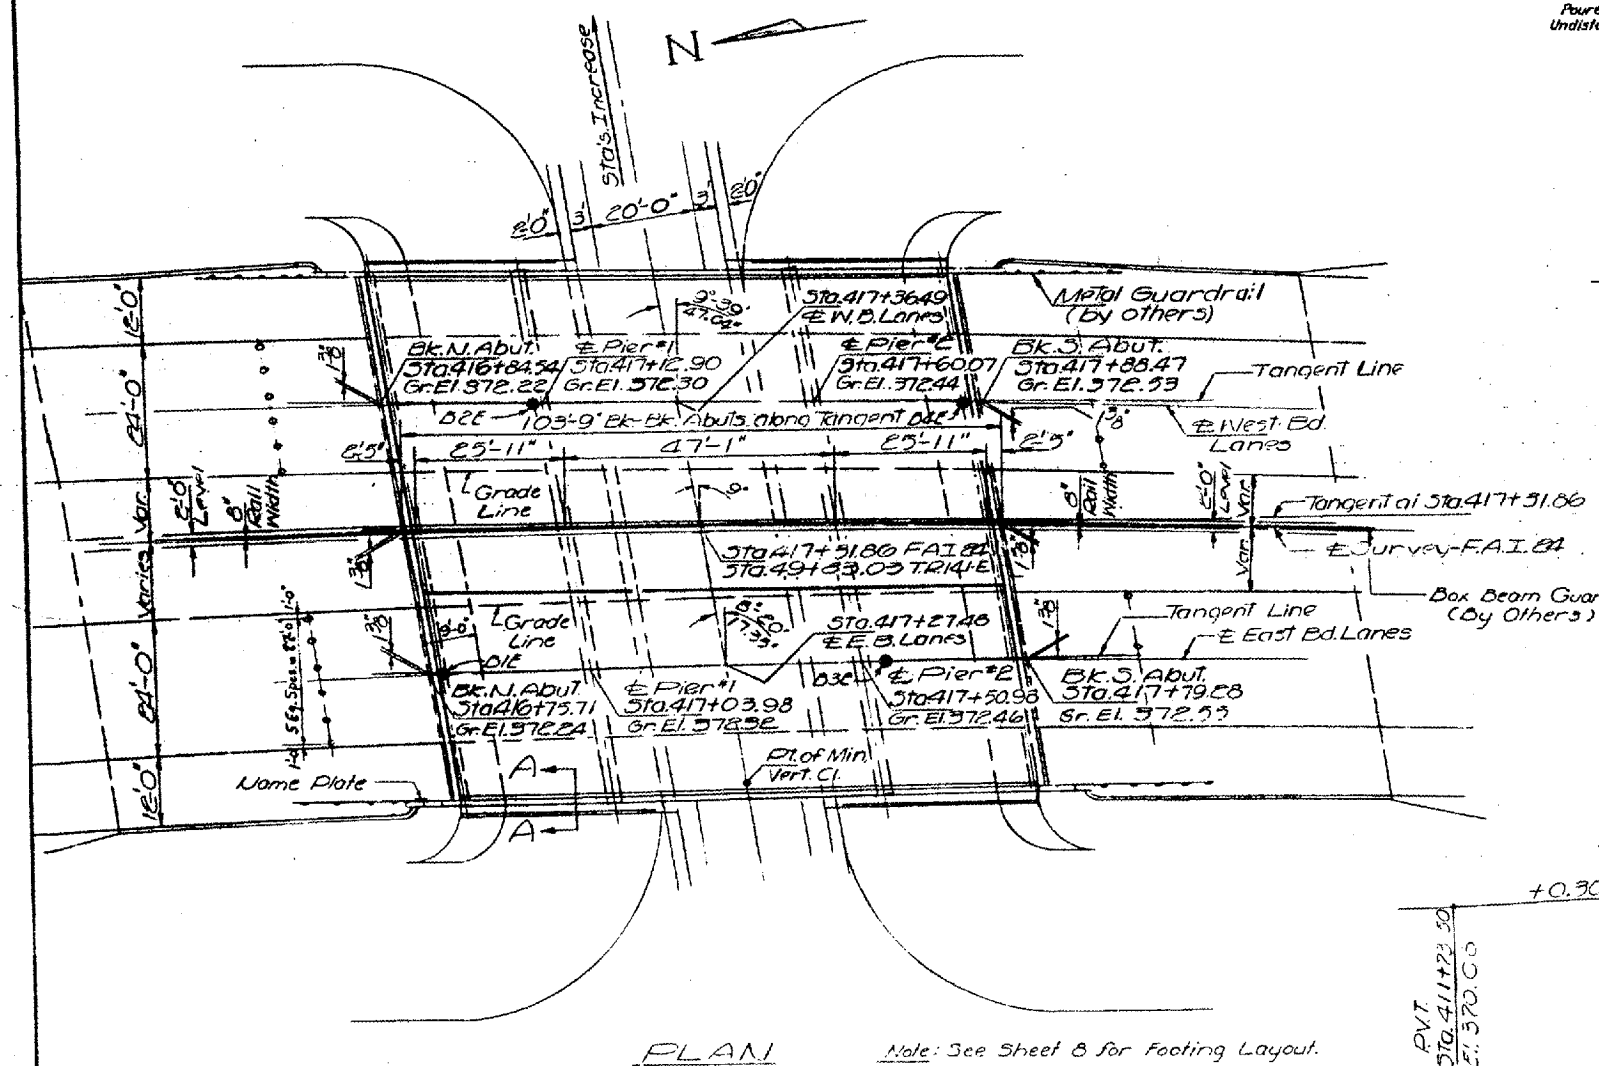 Poure
Undist
N
Sta's. Increase
2'0"
3'
20'-0"
3'
2'0"
12'-0"
24'-0"
Varies
Var.
24'-0"
12'-0"
Sta. 417+36.49
℄ W.B. Lanes
Metal Guardrail
(by others)
Bk. N. Abut.
Sta. 416+84.54
Gr. El. 372.22
℄ Pier #1
Sta. 417+12.90
Gr. El. 372.30
℄ Pier #2
Sta. 417+60.07
Gr. El. 372.44
Bk. S. Abut.
Sta. 417+88.47
Gr. El. 372.53
Tangent Line
B2E
103'-9" Bk-Bk. Abuts. along Tangent
B4E
℄ West Bd.
Lanes
2'5"
25'-11"
47'-1"
25'-11"
2'5"
2'0"
Level
8"
Rail
Width
Grade
Line
9°
8"
Rail
Width
2'-0"
Level
Var.
Var.
Tangent at Sta. 417+31.86
℄ Survey-F.A.I. 24
Sta. 417+31.86 F.A.I. 24
Sta. 49+83.03 TR141E
Box Beam Guar
(By Others)
Grade
Line
Sta. 417+27.48
℄ E.B. Lanes
Tangent Line
℄ East Bd. Lanes
B1E
Bk. N. Abut.
Sta. 416+75.71
Gr. El. 372.24
℄ Pier #1
Sta. 417+03.98
Gr. El. 372.32
B3E
℄ Pier #2
Sta. 417+50.98
Gr. El. 372.46
Bk. S. Abut.
Sta. 417+79.28
Gr. El. 372.55
Name Plate
A
A
Pt. of Min.
Vert. Cl.
+0.30
P.V.T.
Sta. 411+73.50
El. 370.60
PLAN
Note: See Sheet 8 for Footing Layout.